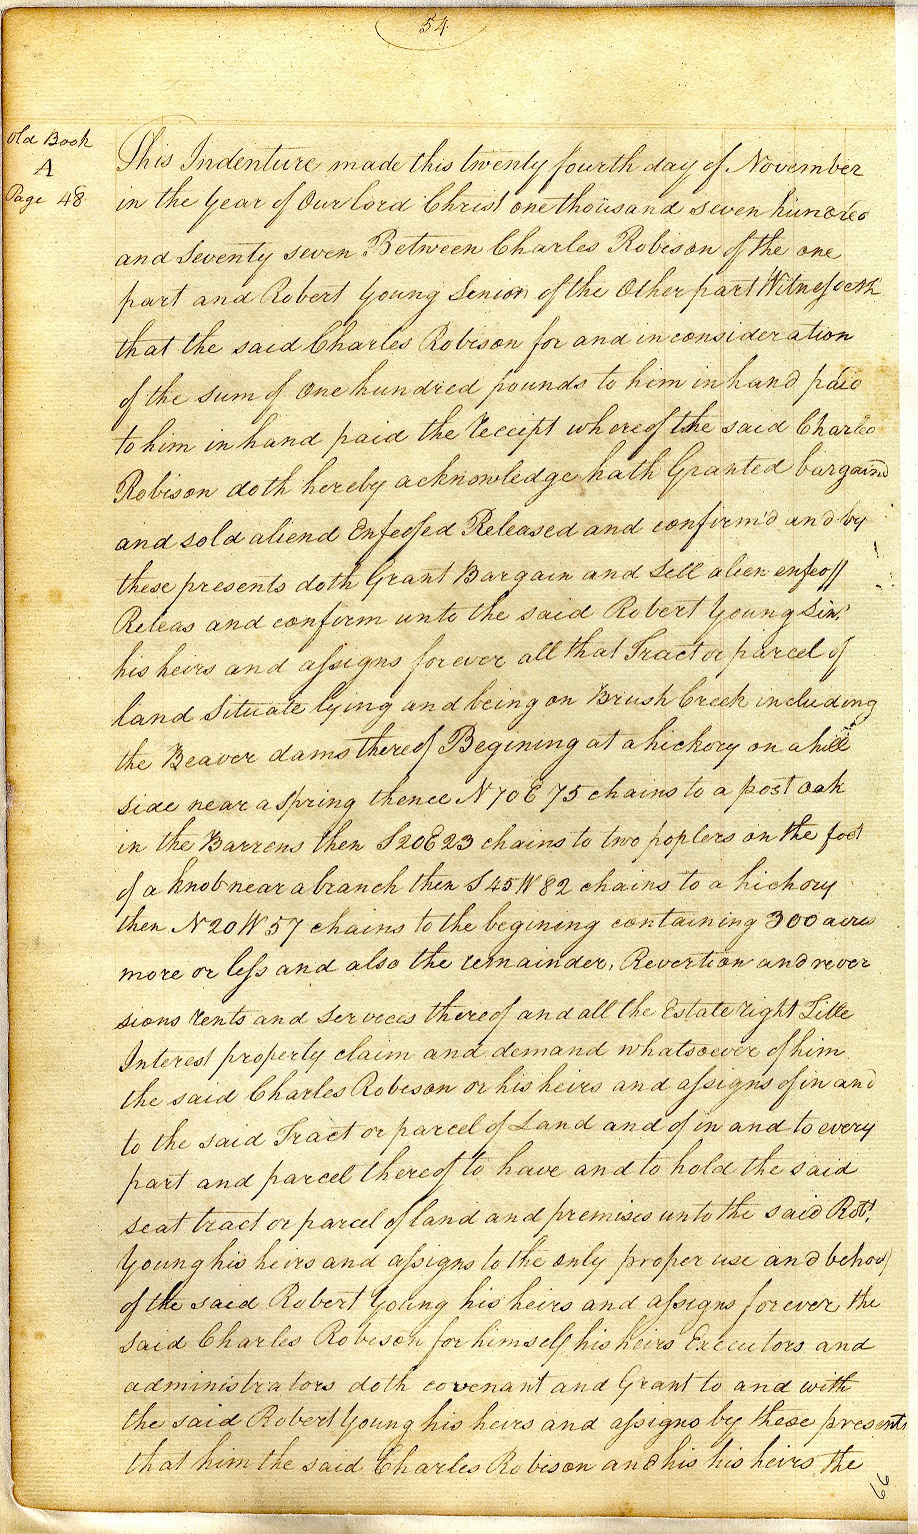 54
Old Book
A
Page 48
This Indenture made this twenty fourth day of November
in the Year of Our Lord Christ one thousand seven hundred
and Seventy seven Between Charles Robison of the one
part and Robert Young Senior of the Other part Witnesseth
that the said Charles Robison for and in consideration
of the sum of One hundred pounds to him in hand paid
to him in hand paid the receipt whereof the said Charles
Robison doth hereby acknowledge hath Granted bargaind
and sold aliend Enfeofed Released and confirm'd and by
these presents doth Grant Bargain and Sell alien enfeoff
Releas and confirm unto the said Robert Young Sinr
his heirs and assigns forever all that Tract or parcel of
land Situate lying and being on Brush Creek including
the Beaver dams thereof Begining at a hickory on a hill
side near a Spring thence N 70 E 75 chains to a post oak
in the Barrens then S 20 E 23 chains to two poplers on the foot
of a knob near a branch then S 45 W 82 chains to a hickory
then N 20 W 57 chains to the begining containing 300 acres
more or less and also the remainder, Revertion and rever
sions rents and Services thereof and all the Estate right Title
Interest property claim and demand whatsoever of him
the said Charles Robison or his heirs and assigns of in and
to the said Tract or parcel of Land and of in and to every
part and parcel thereof to have and to hold the said
seat tract or parcel of land and premises unto the said Robt.
Young his heirs and assigns to the only proper use and behoof
of the said Robert Young his heirs and assigns forever the
said Charles Robison for himself his heirs Executors and
administrators doth covenant and Grant to and with
the said Robert Young his heirs and assigns by these presents
that him the said Charles Robison and his his heirs the
66